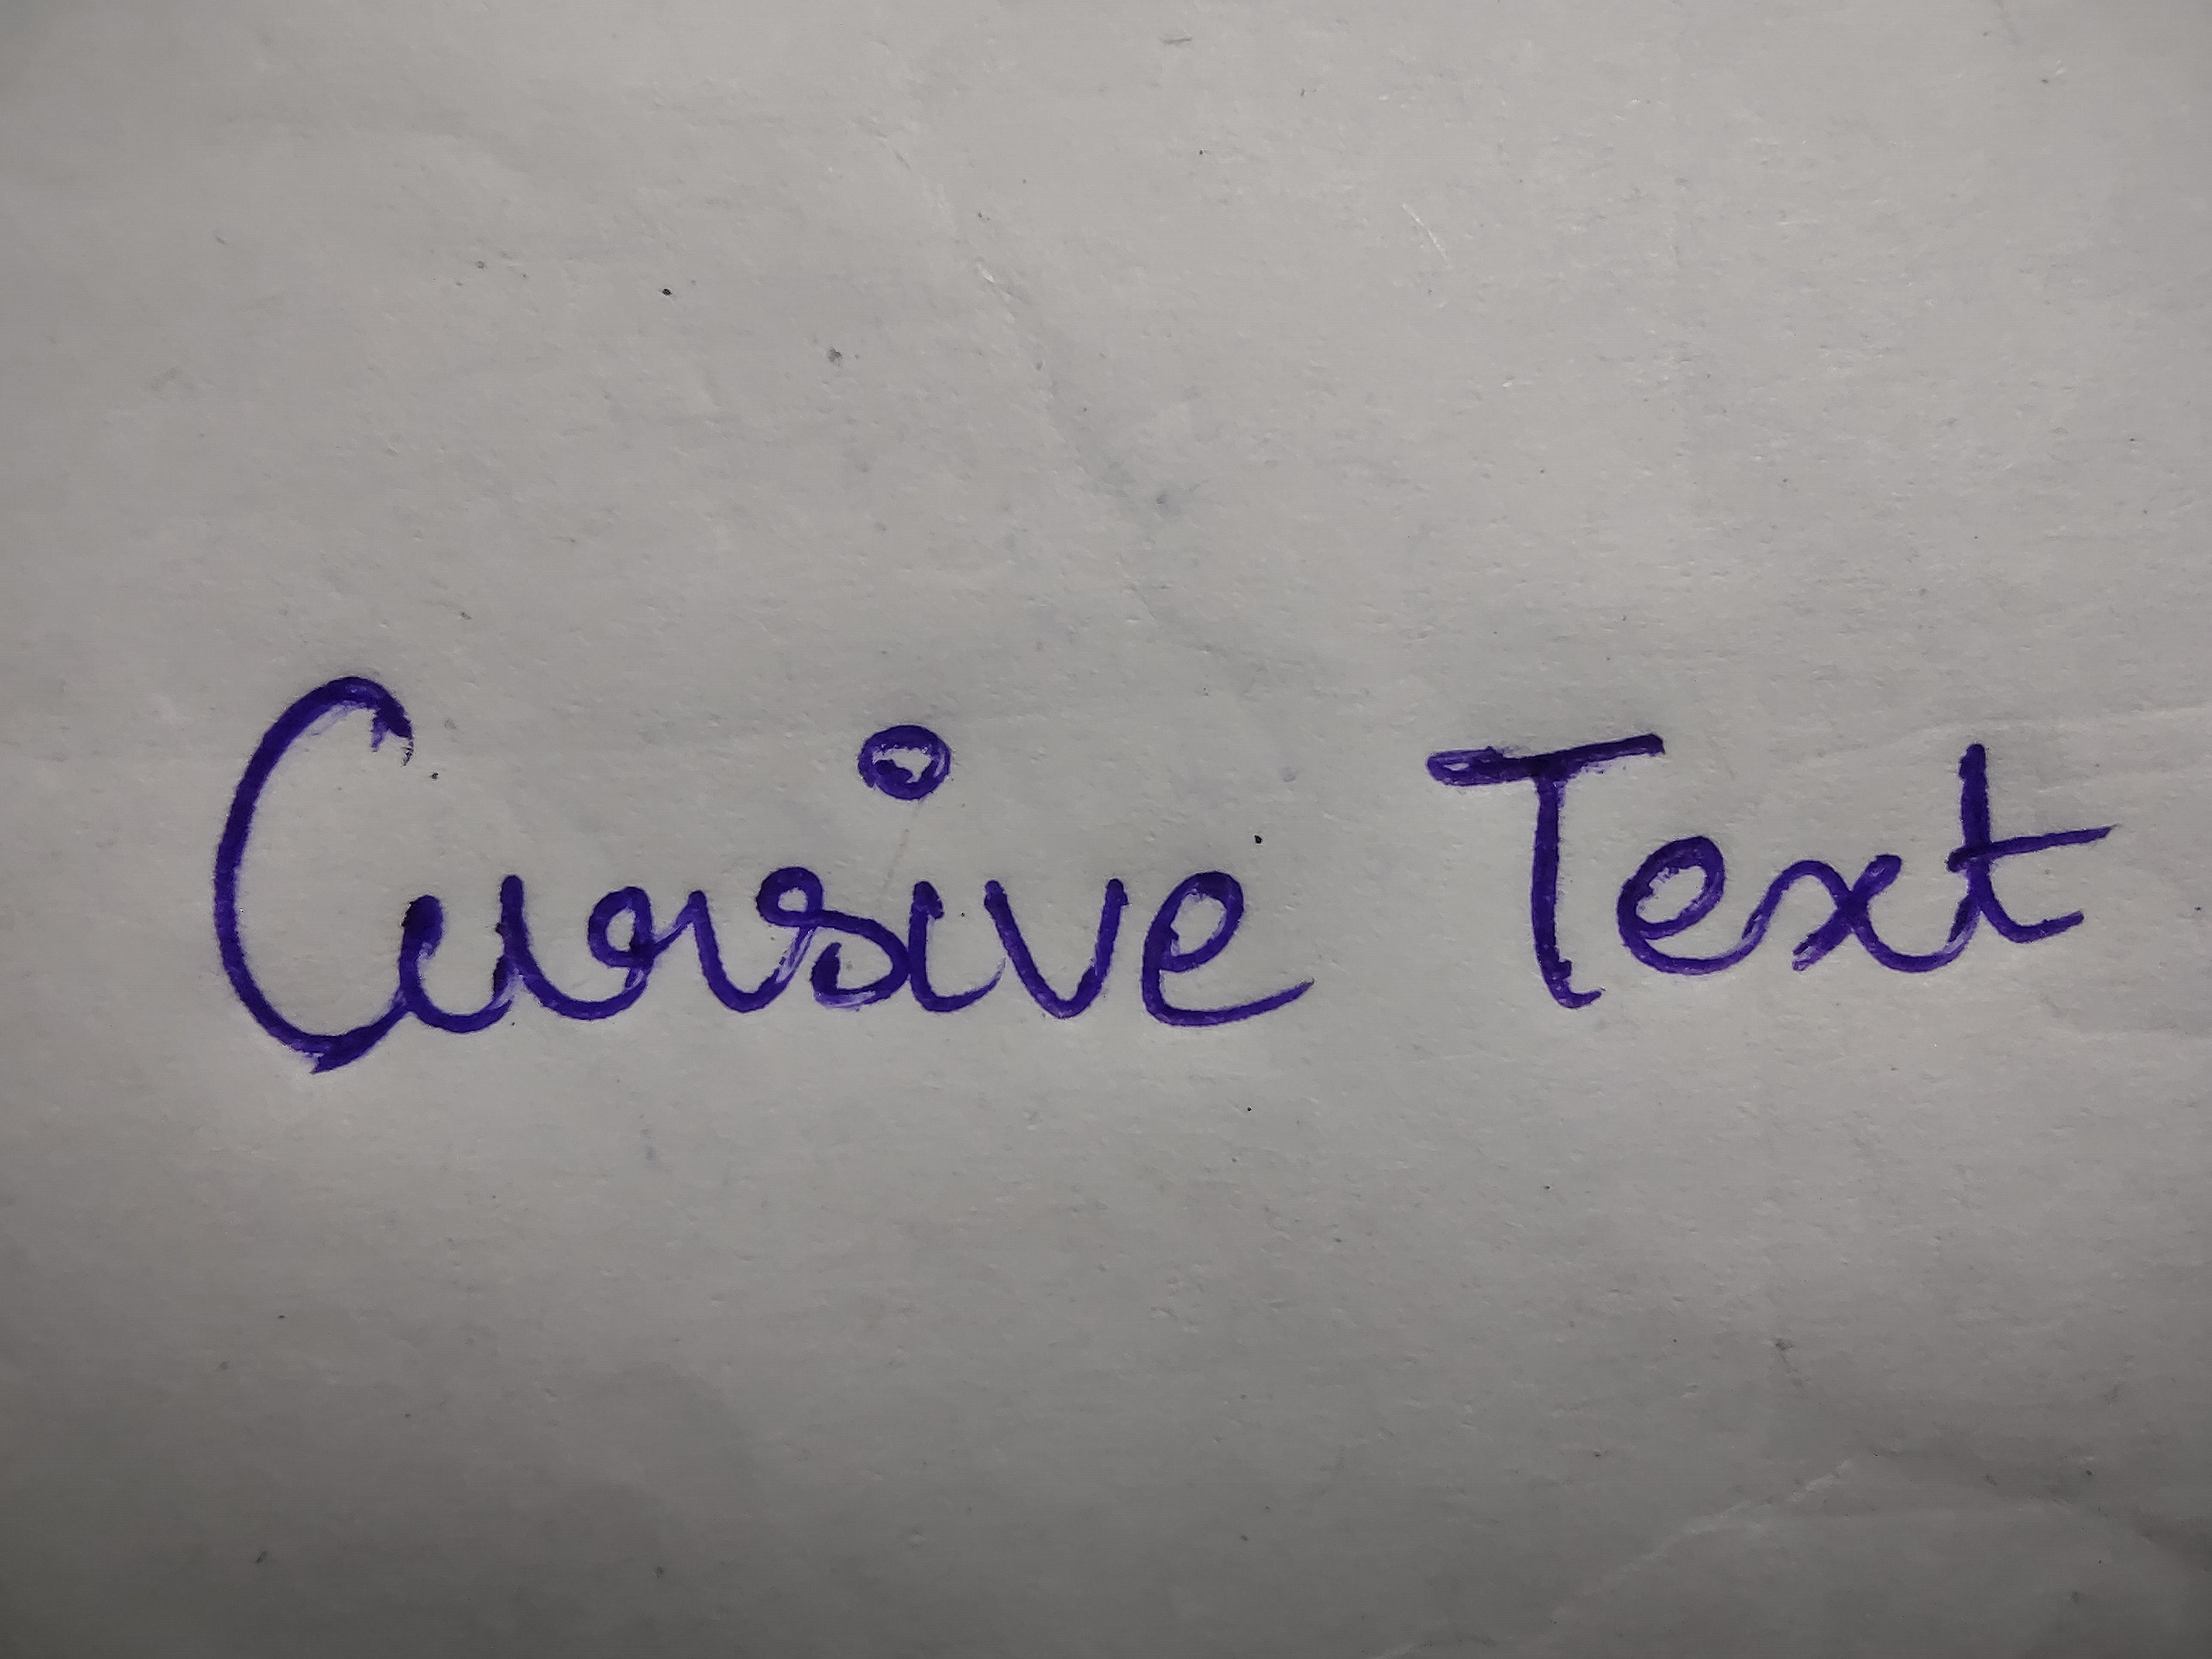 Cursive Text